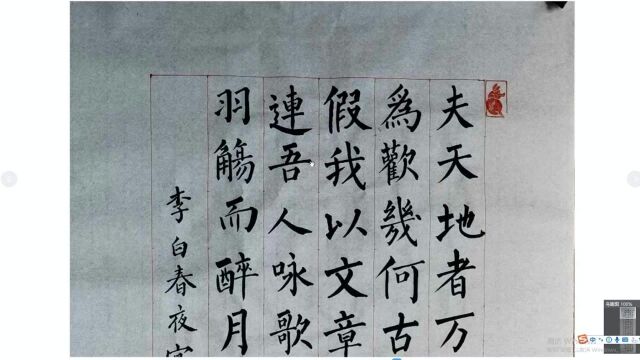 夫天地者万
爲歡幾何古
假我以文章
連吾人咏歌
羽觴而醉月
李白春夜
鸟瞰图 100%
中